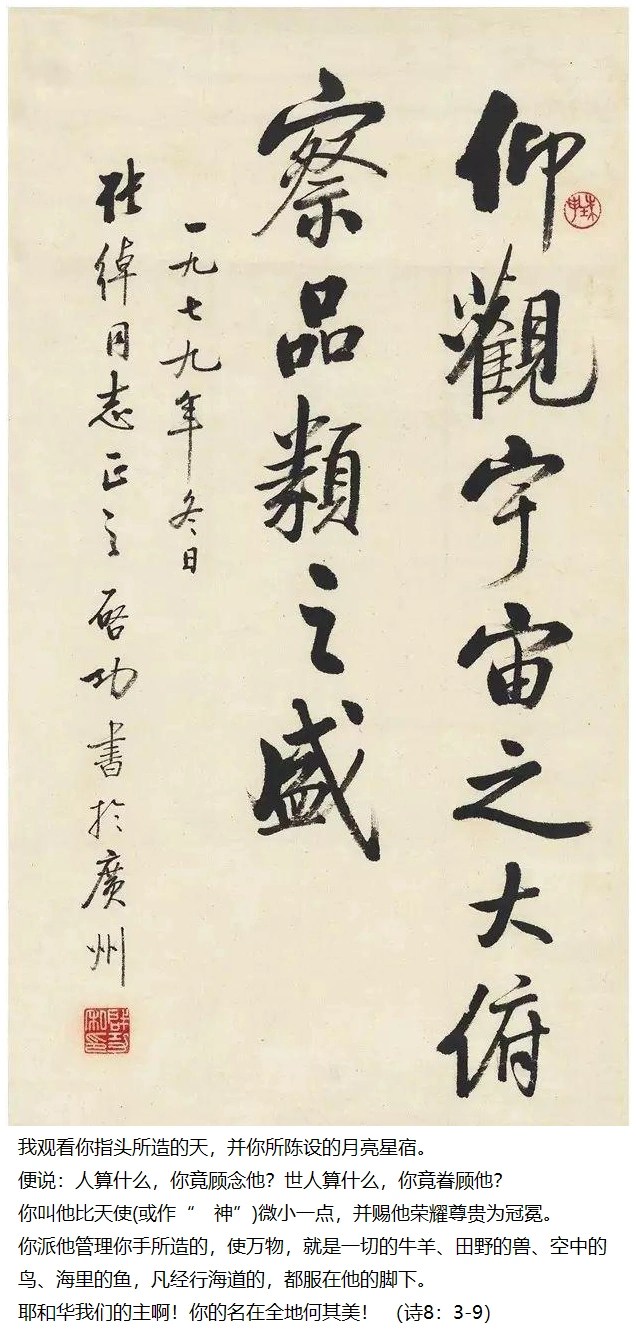 仰觀宇宙之大俯
察品類之盛
一九七九年冬日
张綽同志正之 启功書於廣州
我观看你指头所造的天，并你所陈设的月亮星宿。
便说：人算什么，你竟顾念他？世人算什么，你竟眷顾他？
你叫他比天使(或作“ 神”)微小一点，并赐他荣耀尊贵为冠冕。
你派他管理你手所造的，使万物，就是一切的牛羊、田野的兽、空中的
鸟、海里的鱼，凡经行海道的，都服在他的脚下。
耶和华我们的主啊！你的名在全地何其美！ (诗8：3-9)